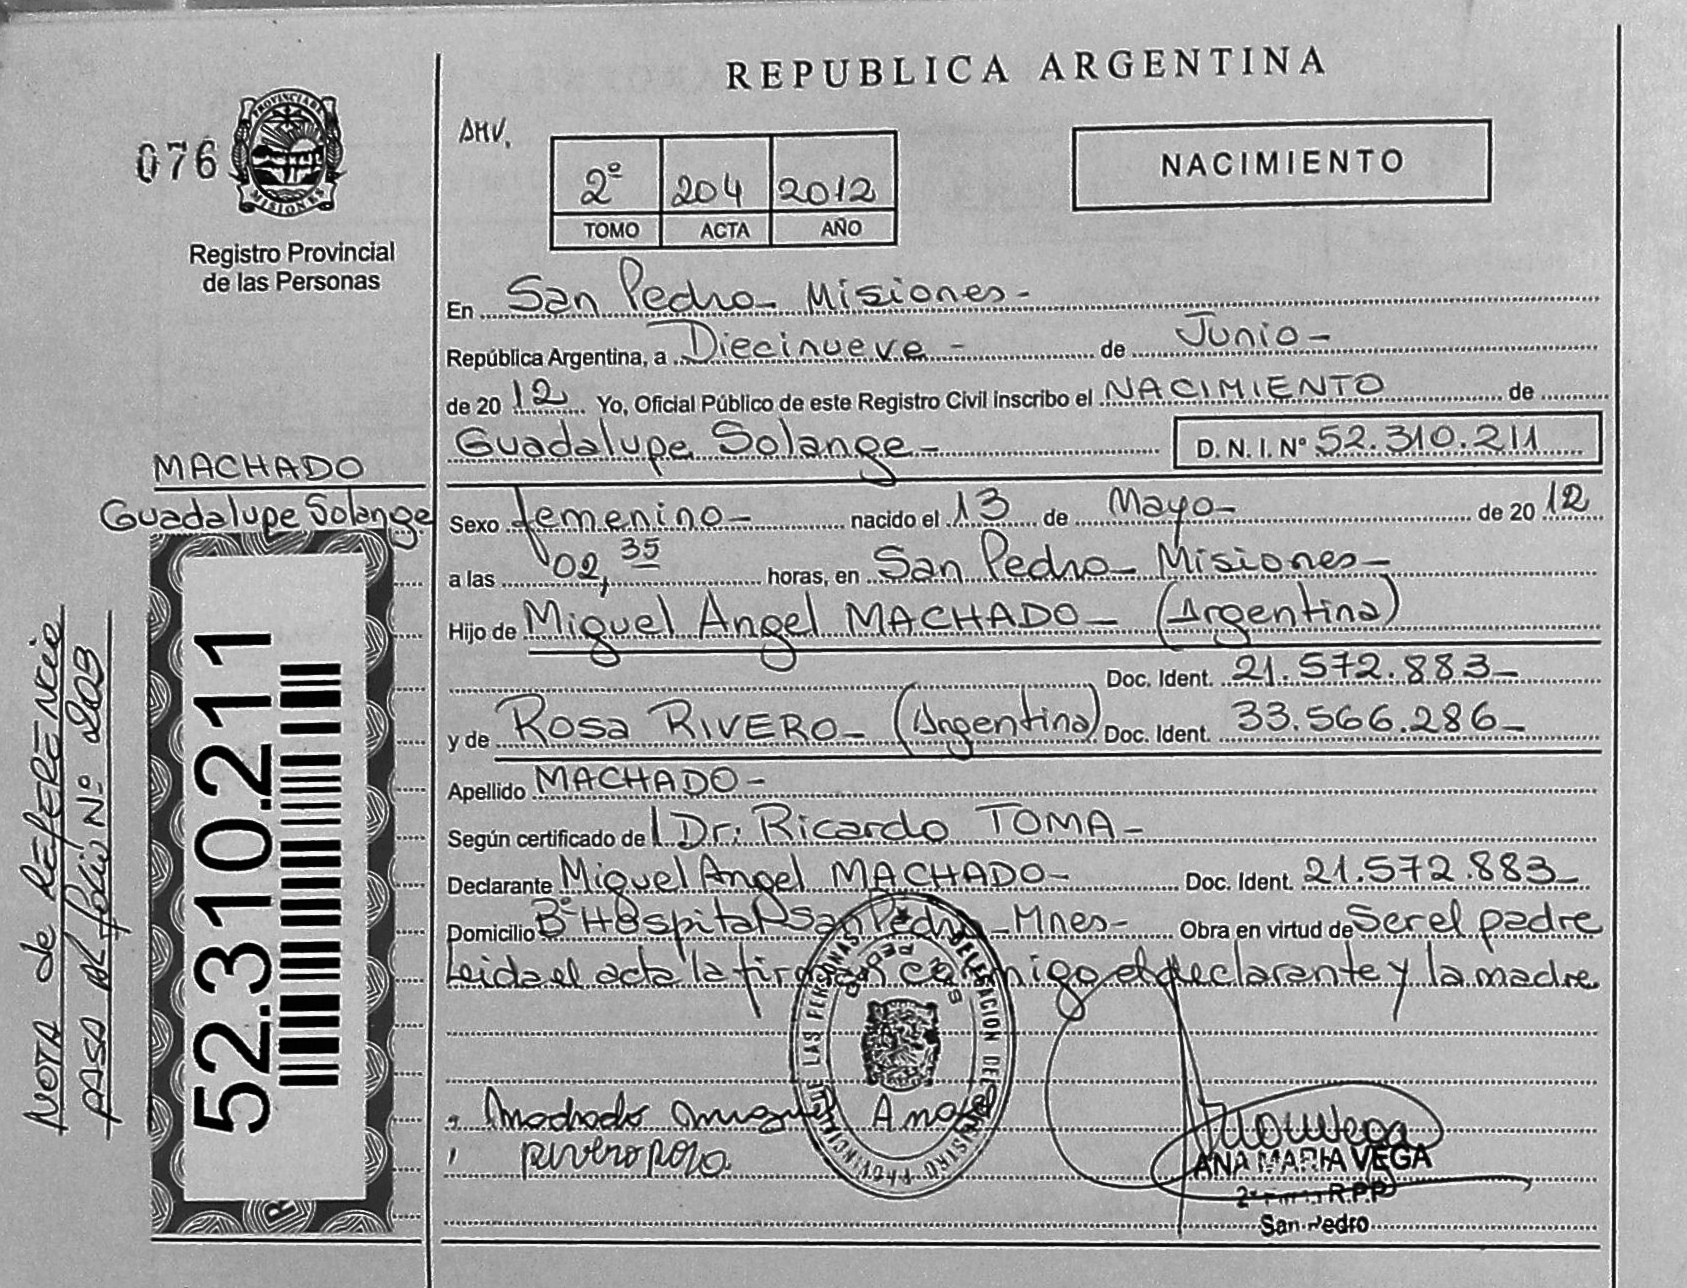 REPUBLICA ARGENTINA
076
PROVINCIA DE MISIONES
Registro Provincial
de las Personas
AMV.
2º 204 2012
TOMO ACTA AÑO
NACIMIENTO
En San Pedro - Misiones -
República Argentina, a Diecinueve - de Junio -
de 2012 Yo, Oficial Público de este Registro Civil inscribo el NACIMIENTO de
Guadalupe Solange - D. N. I. Nº 52.310.211
MACHADO
Guadalupe Solange
52.310.211
NOTA de REFERENCIA
PASA AL folio Nº 203
Sexo femenino - nacido el 13 de Mayo - de 2012
a las 02,35 horas, en San Pedro - Misiones -
Hijo de Miguel Angel MACHADO - (Argentina)
Doc. Ident. 21.572.883 -
y de Rosa RIVERO - (Argentina) Doc. Ident. 33.566.286 -
Apellido MACHADO -
Según certificado de Dr: Ricardo TOMA -
Declarante Miguel Angel MACHADO - Doc. Ident. 21.572.883 -
Domicilio Bº Hospital San Pedro - Mnes - Obra en virtud de Ser el padre
Leida el acta la firman conmigo el declarante y la madre
Machado Miguel Angel
Rivero Rosa
DELEGACION DEL REGISTRO PROVINCIAL DE LAS PERSONAS
SAN PEDRO
ANA MARIA VEGA
R.P.P
San Pedro